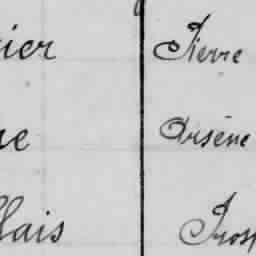 ier Pierre
ne Arsène
lais Prosp